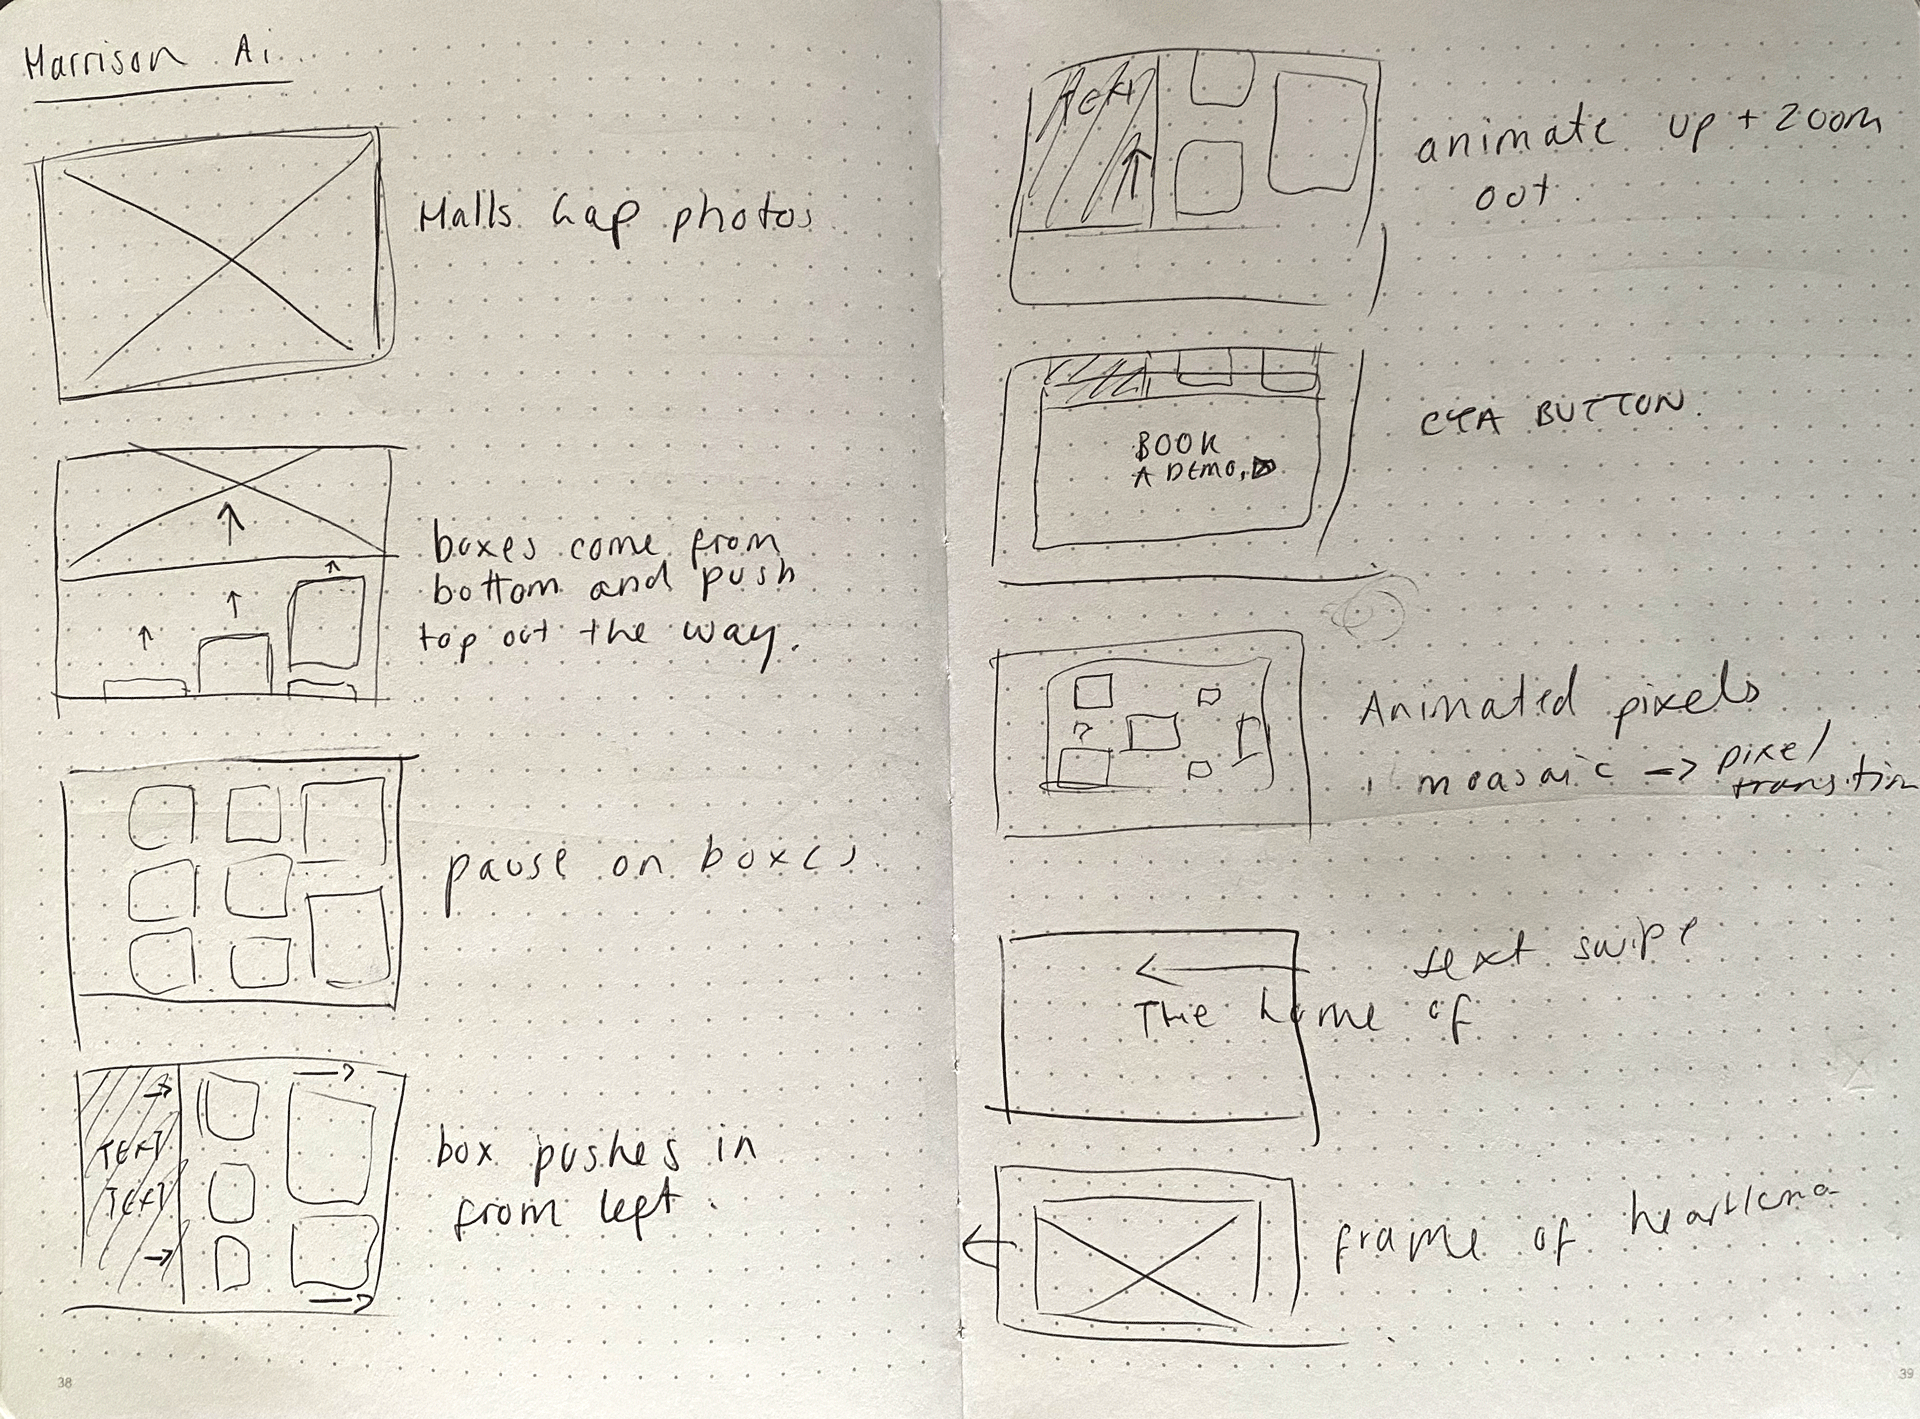 Harrison Ai
Halls Gap photos
boxes come from
bottom and push
top out the way.
pause on boxes.
TEXT
TEXT
box pushes in
from left.
38
TEXT
animate up + zoom
out.
BOOK
A DEMO.
CTA BUTTON.
Animated pixels
moasaic -> pixel
transition
text swipe
The home of
frame of
39